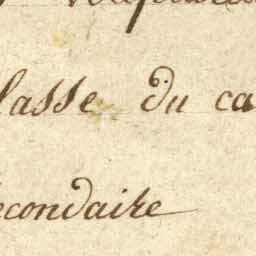 lasse du ca
econdaire